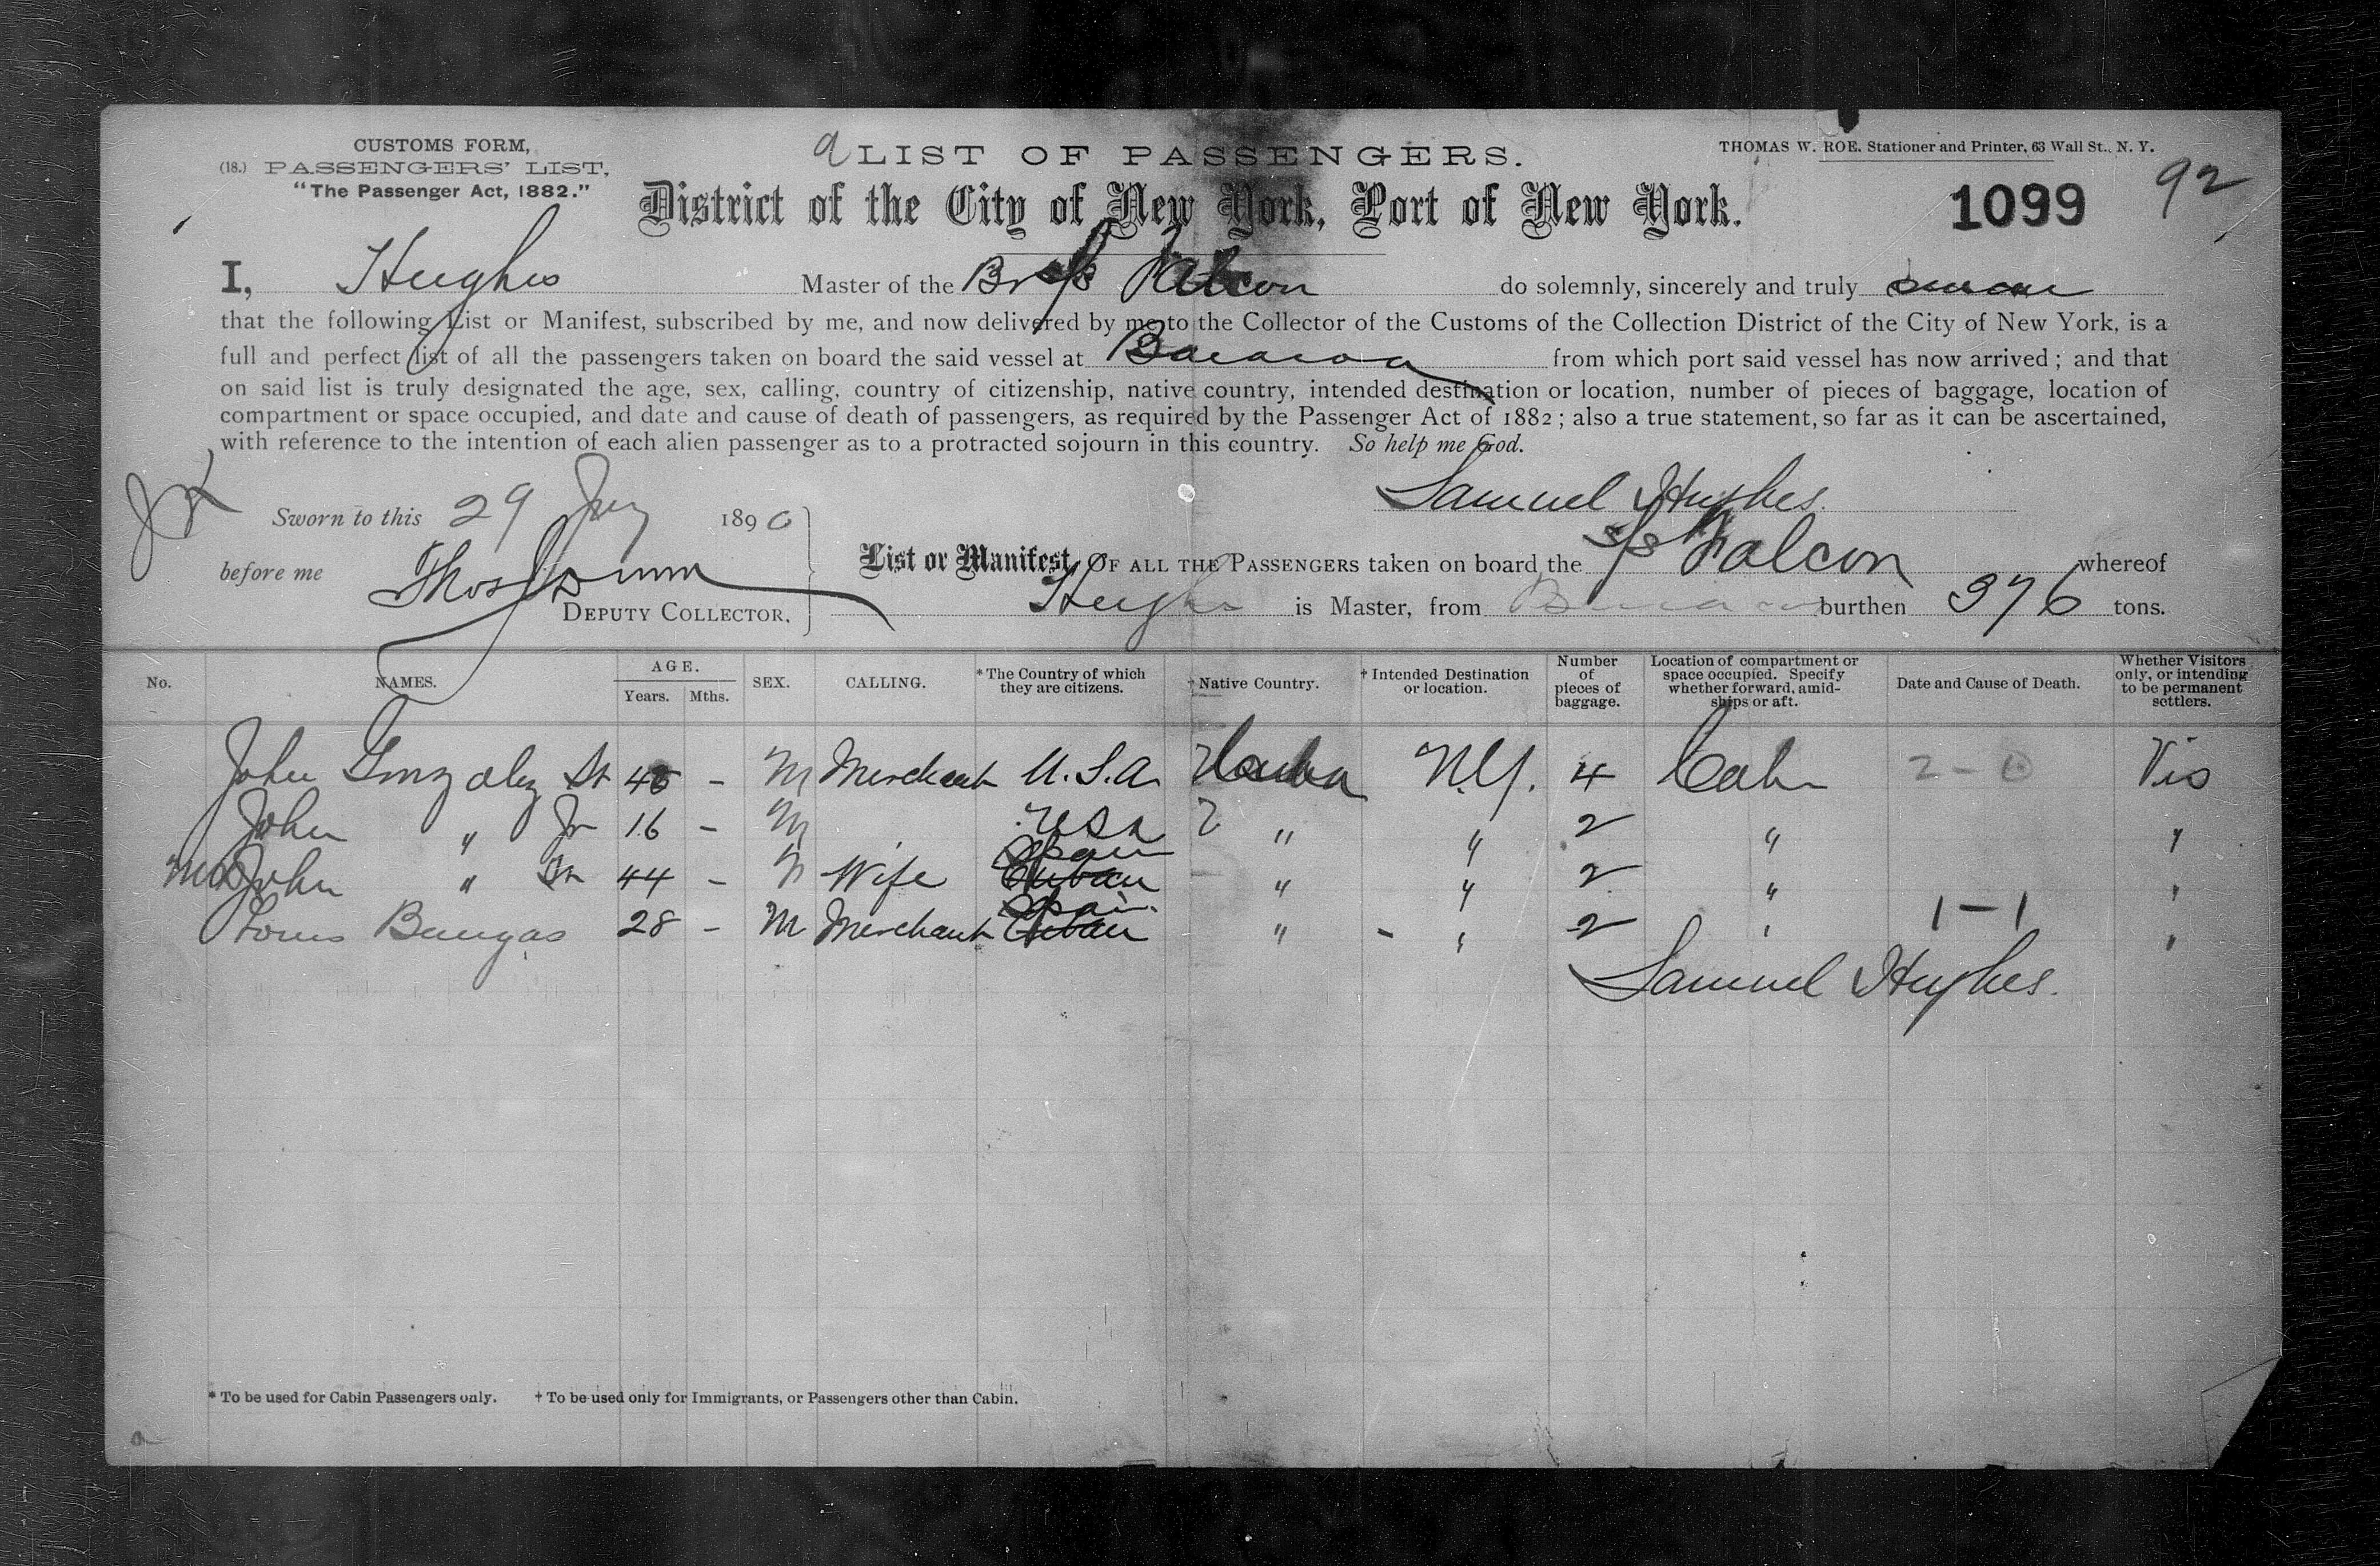 CUSTOMS FORM,
(18.) PASSENGERS' LIST,
"The Passenger Act, 1882."
LIST OF PASSENGERS.
District of the City of New York, Port of New York.
THOMAS W. ROE. Stationer and Printer, 63 Wall St., N. Y.
1099 92
I, Hughes Master of the Br s/s Falcon do solemnly, sincerely and truly swear
that the following List or Manifest, subscribed by me, and now delivered by me to the Collector of the Customs of the Collection District of the City of New York, is a
full and perfect list of all the passengers taken on board the said vessel at Baracoa from which port said vessel has now arrived; and that
on said list is truly designated the age, sex, calling, country of citizenship, native country, intended destination or location, number of pieces of baggage, location of
compartment or space occupied, and date and cause of death of passengers, as required by the Passenger Act of 1882; also a true statement, so far as it can be ascertained,
with reference to the intention of each alien passenger as to a protracted sojourn in this country. So help me God.
Samuel Hughes.
Sworn to this 29 1890
before me Thos
DEPUTY COLLECTOR.
List or Manifest OF ALL THE PASSENGERS taken on board the s/s Falcon whereof
Hughes is Master, from Baracoa burthen 376 tons.
No. NAMES. AGE. Years. Mths. SEX. CALLING. *The Country of which they are citizens. †Native Country. †Intended Destination or location. Number of pieces of baggage. Location of compartment or space occupied. Specify whether forward, amid-ships or aft. Date and Cause of Death. Whether Visitors only, or intending to be permanent settlers.
John Gonzalez Sr - M Merchant U.S.A. Cuba N.Y. 4 Cabn 2-0 Vis
John " Jr 16 - M USA " " 2 " "
Mrs John " Sr 44 - Wife Spain Cuban " " 2 " "
Louis 28 - M Merchant Spain Cuban " - " 2 " 1-1 "
Samuel Hughes.
* To be used for Cabin Passengers only. † To be used only for Immigrants, or Passengers other than Cabin.